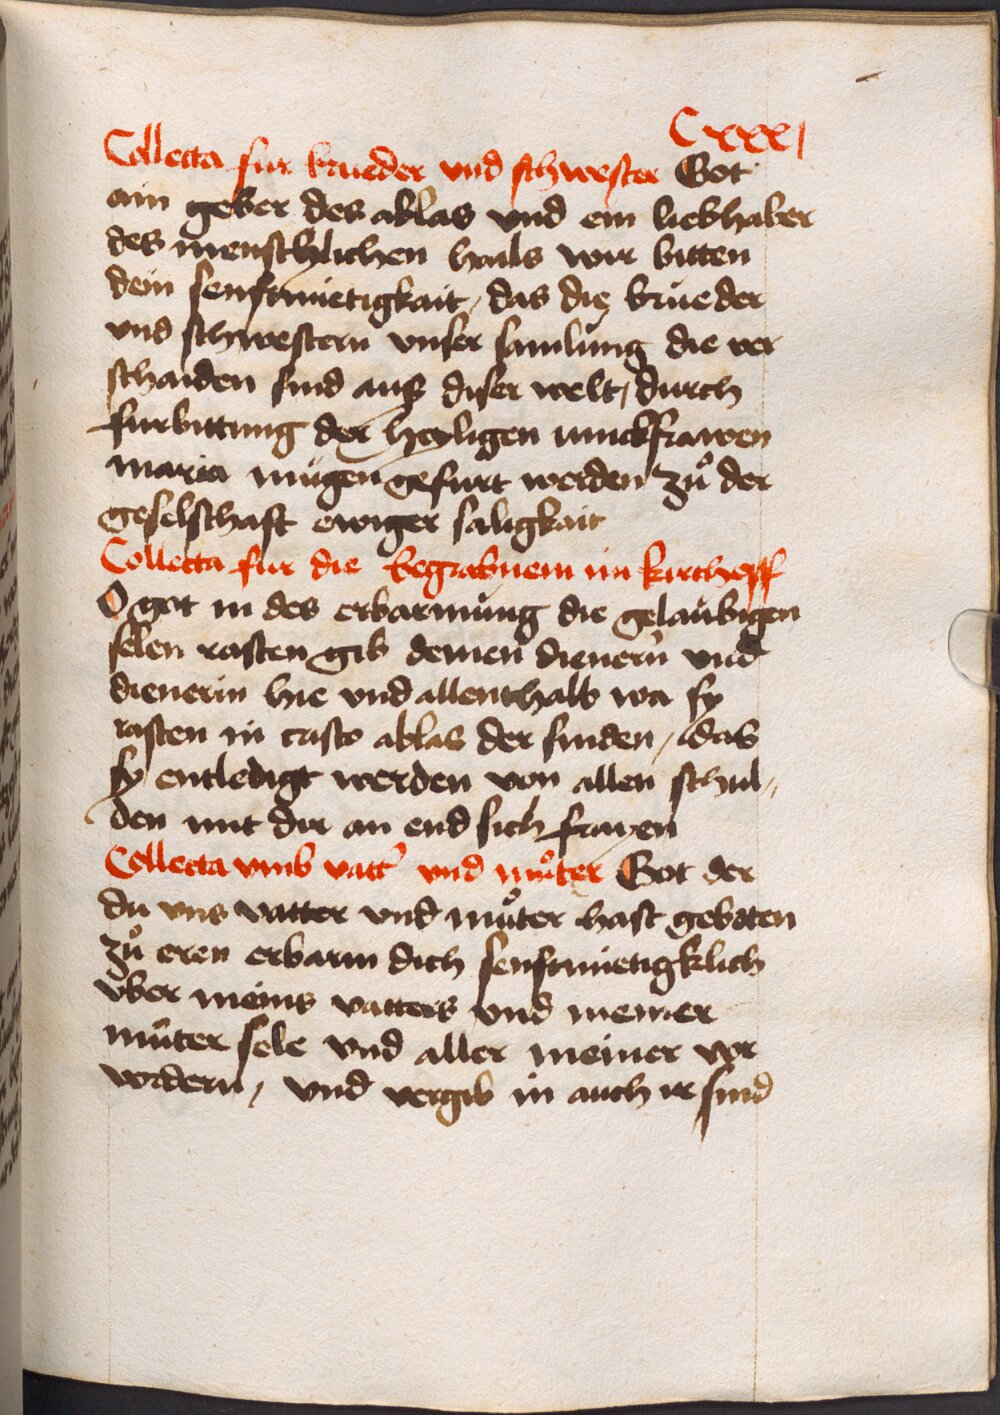 Cxxxj
Collecta fur brueder vnd schwester Got
ain geber des ablas vnd ein liebhaber
des menschlichen hails wir bitten
dein senftmuetigkait, das die brueder
vnd schwestern vnser samlung die ver
schaiden sind auß diser welt, durch
furbittung der heyligen iunckfrawen
maria mügen gefurt werden zů der
geselschaft ewiger saligkait
Collecta fur die begrabnem im kirchoff
O got in des erbarmung die gelaubigen
selen rasten gib deinen dienern vnd
dienerin hie vnd allenthalb wa sy
rasten in cristo ablas der sunden, das
sy entledigt werden von allen schul„
den mit dir an end sich frayen
Collecta vmb vatt' vnd můter Got der
du vns vatter vnd můter hast geboten
zů eren erbarm dich senftmuetigklich
vber meins vatters vnd meiner
můter sele vnd aller meiner vor
vordern, vnd vergib in auch ir sind